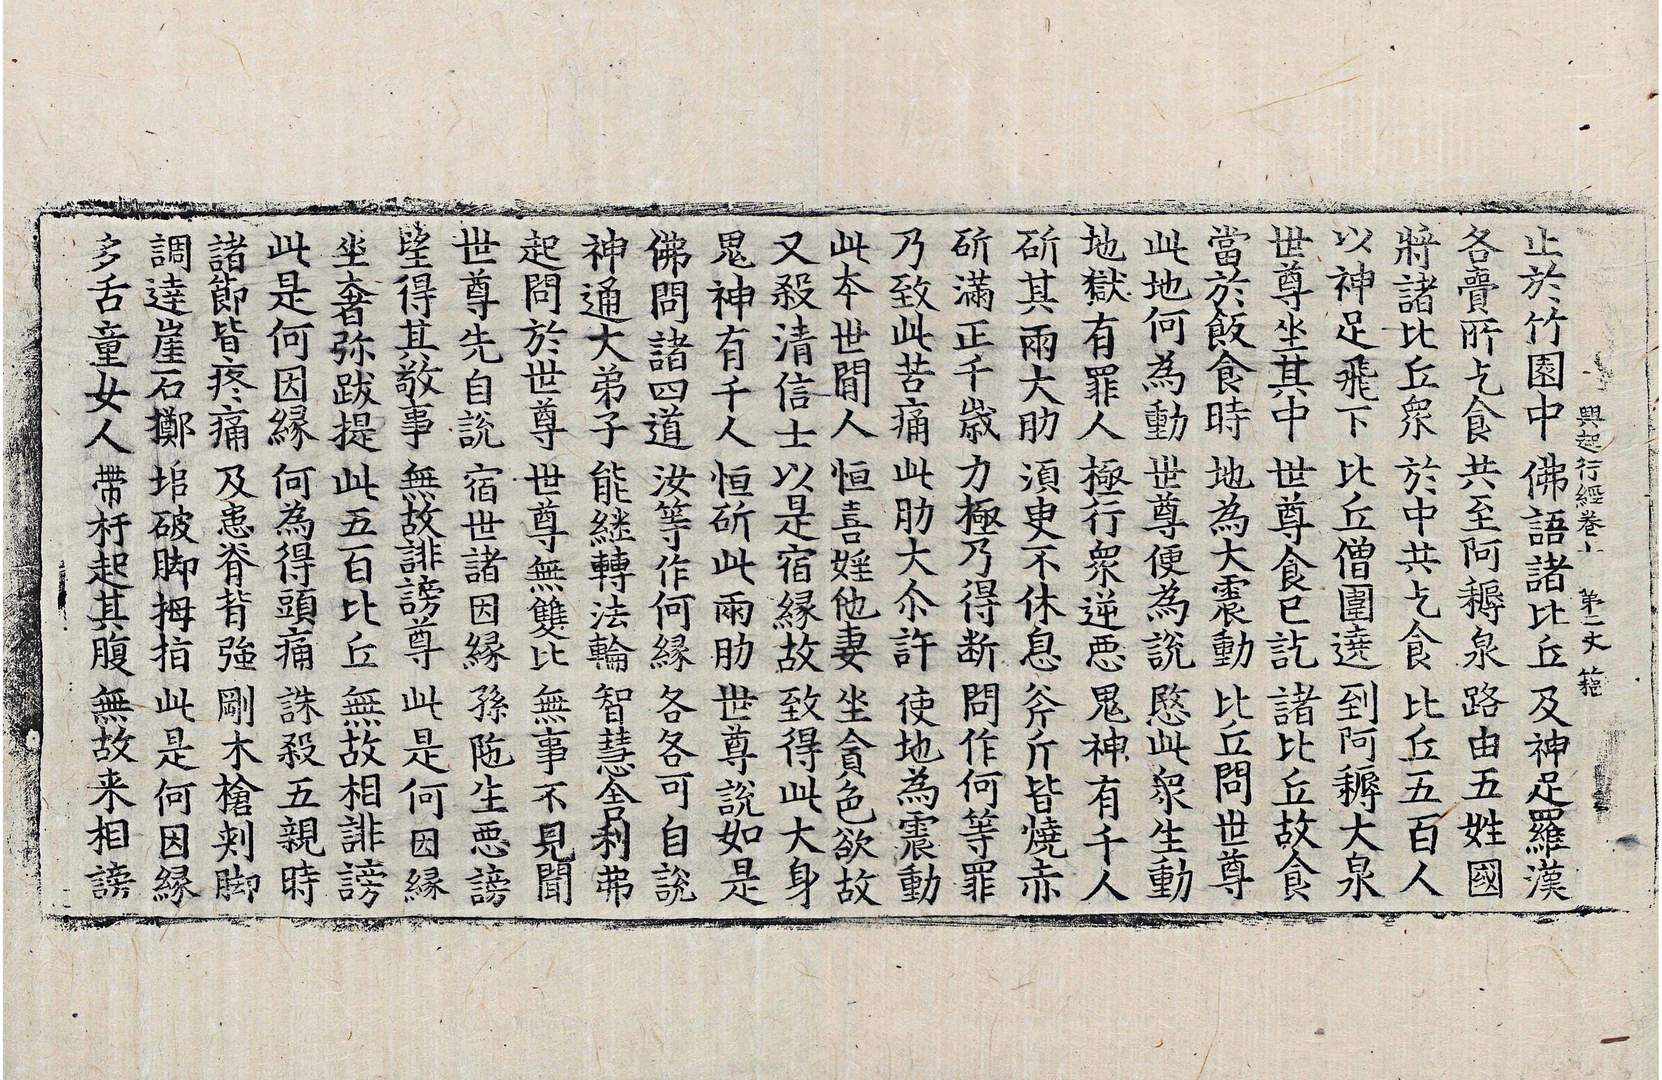 興起行經卷上　第二丈　籍
止於竹園中　佛語諸比丘　及神足羅漢
各賷所乞食　共至阿耨泉　路由五姓國
將諸比丘衆　於中共乞食　比丘五百人
以神足飛下　比丘僧圍遶　到阿耨大泉
世尊坐其中　世尊食已訖　諸比丘故食
當於飯食時　地為大震動　比丘問世尊
此地何為動　世尊便為說　愍此衆生動
地獄有罪人　極行衆逆惡　鬼神有千人
斫其兩大肋　須臾不休息　斧斤皆燒赤
斫滿正千歲　力極乃得斷　問作何等罪
乃致此苦痛　此肋大尒許　使地為震動
此本世間人　恒喜婬他妻　坐貪色欲故
又殺清信士　以是宿緣故　致得此大身
鬼神有千人　恒斫此兩肋　世尊說如是
佛問諸四道　汝等作何緣　各各可自說
神通大弟子　能継轉法輪　智慧舍利弗
起問於世尊　世尊無雙比　無事不見聞
世尊先自說　宿世諸因緣　孫陁生惡謗
望得其敬事　無故誹謗尊　此是何因緣
坐奢弥跋提　此五百比丘　無故相誹謗
此是何因緣　何為得頭痛　誅殺五親時
諸節皆疼痛　及患脊背強　剛木槍刾脚
調達崖石擲　埳破脚拇指　此是何因緣
多舌童女人　帶杅起其腹　無故来相謗